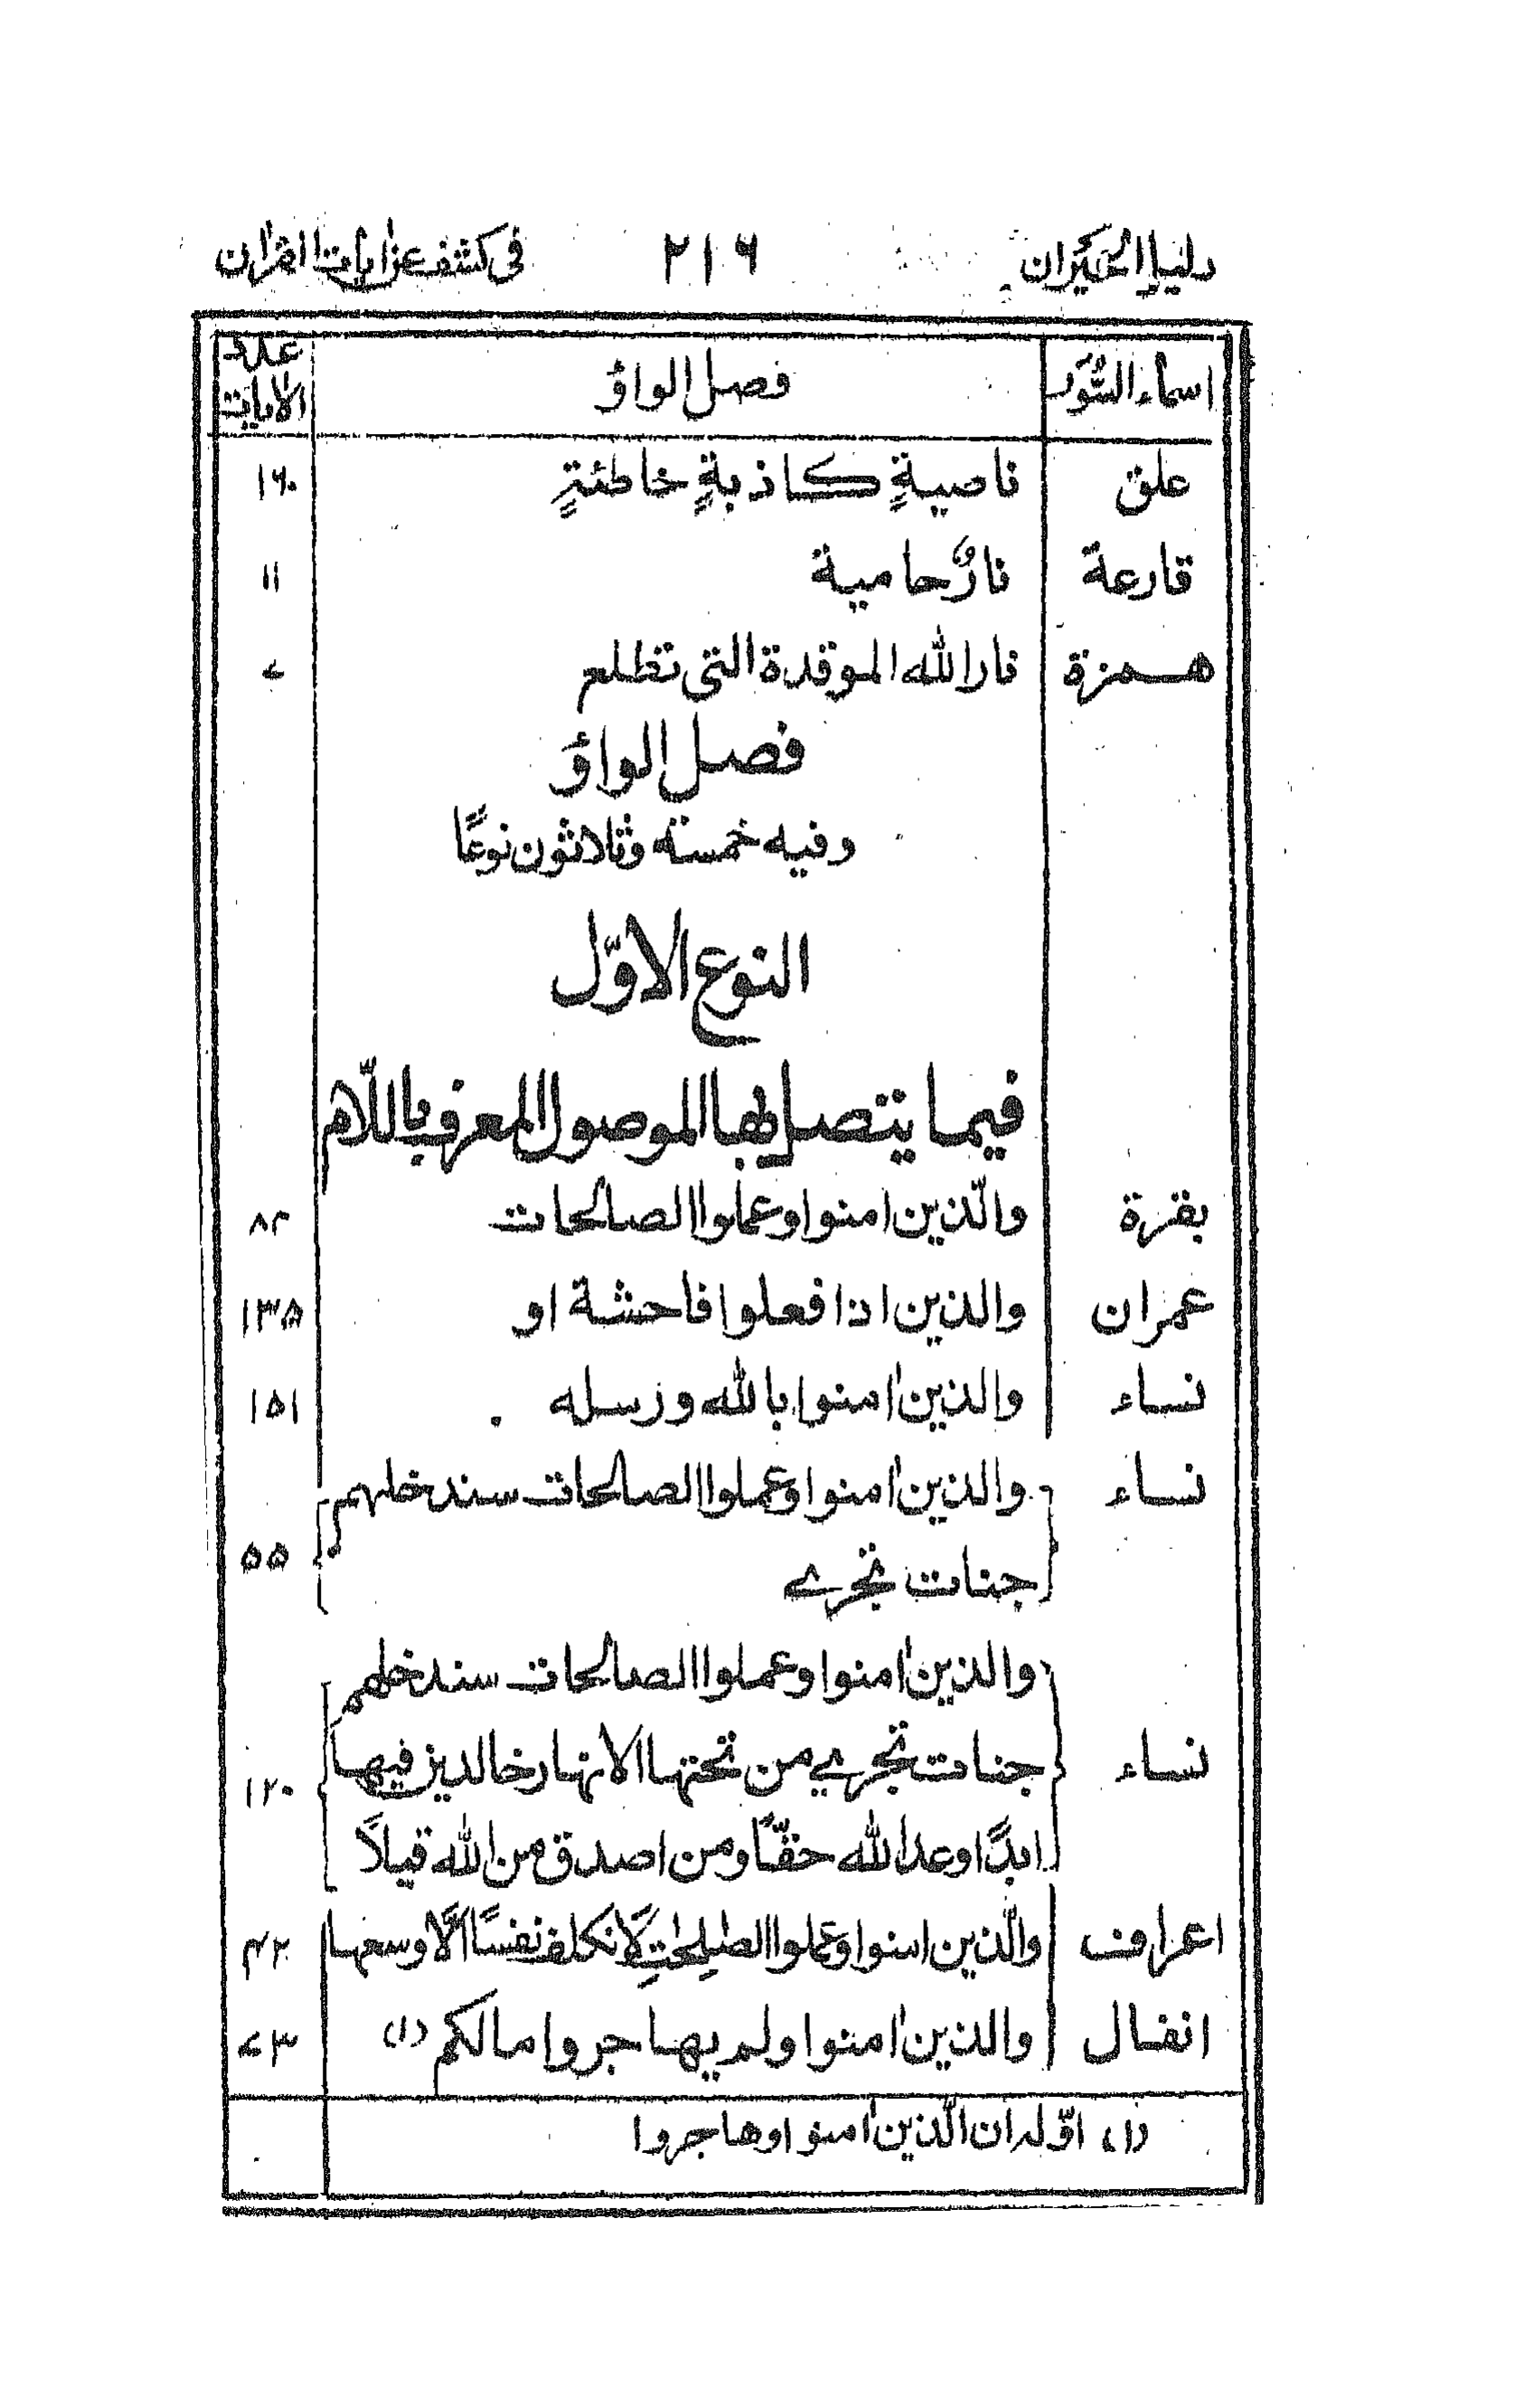 دليل الحيران ٢١٦ في كشف عن ايات القران
اسماء السُّوَر فصل الواؤ عدد الايات
علق ناصيةٍ كاذبةٍ خاطئةٍ ١٦٠
قارعة نارٌ حامية ١١
همزة نار الله الموقدة التي تطلع ٧
فصل الواؤ
وفيه خمسته وثلاثون نوعًا
النوع الاوّل
فيما يتصل بها الموصول المعرف باللّام
بقرة والّذين امنوا وعملوا الصالحات ٨٢
عمران والذين اذا فعلوا فاحشة او ١٣٥
نساء والذين اٰمنوا بالله ورسله ١٥١
نساء والذين اٰمنوا وعملوا الصالحات سندخلهم
جنات تجرے ٥٥
والذين اٰمنوا وعملوا الصالحات سندخلهم
نساء جنات تجري من تحتها الانهار خالدين فيها ١٢٠
ابدًا وعد الله حقًّا ومن اصدق من الله قيلاً
اعراف والّذين امنوا وعملوا الصّٰلِحٰتِ لَا نكلف نفسًا الَّا وسعها ٤٢
انفال والذين اٰمنوا ولم يهاجروا مالكم (١) ٧٣
(١) اوّله ان الّذين اٰمنوا وهاجروا